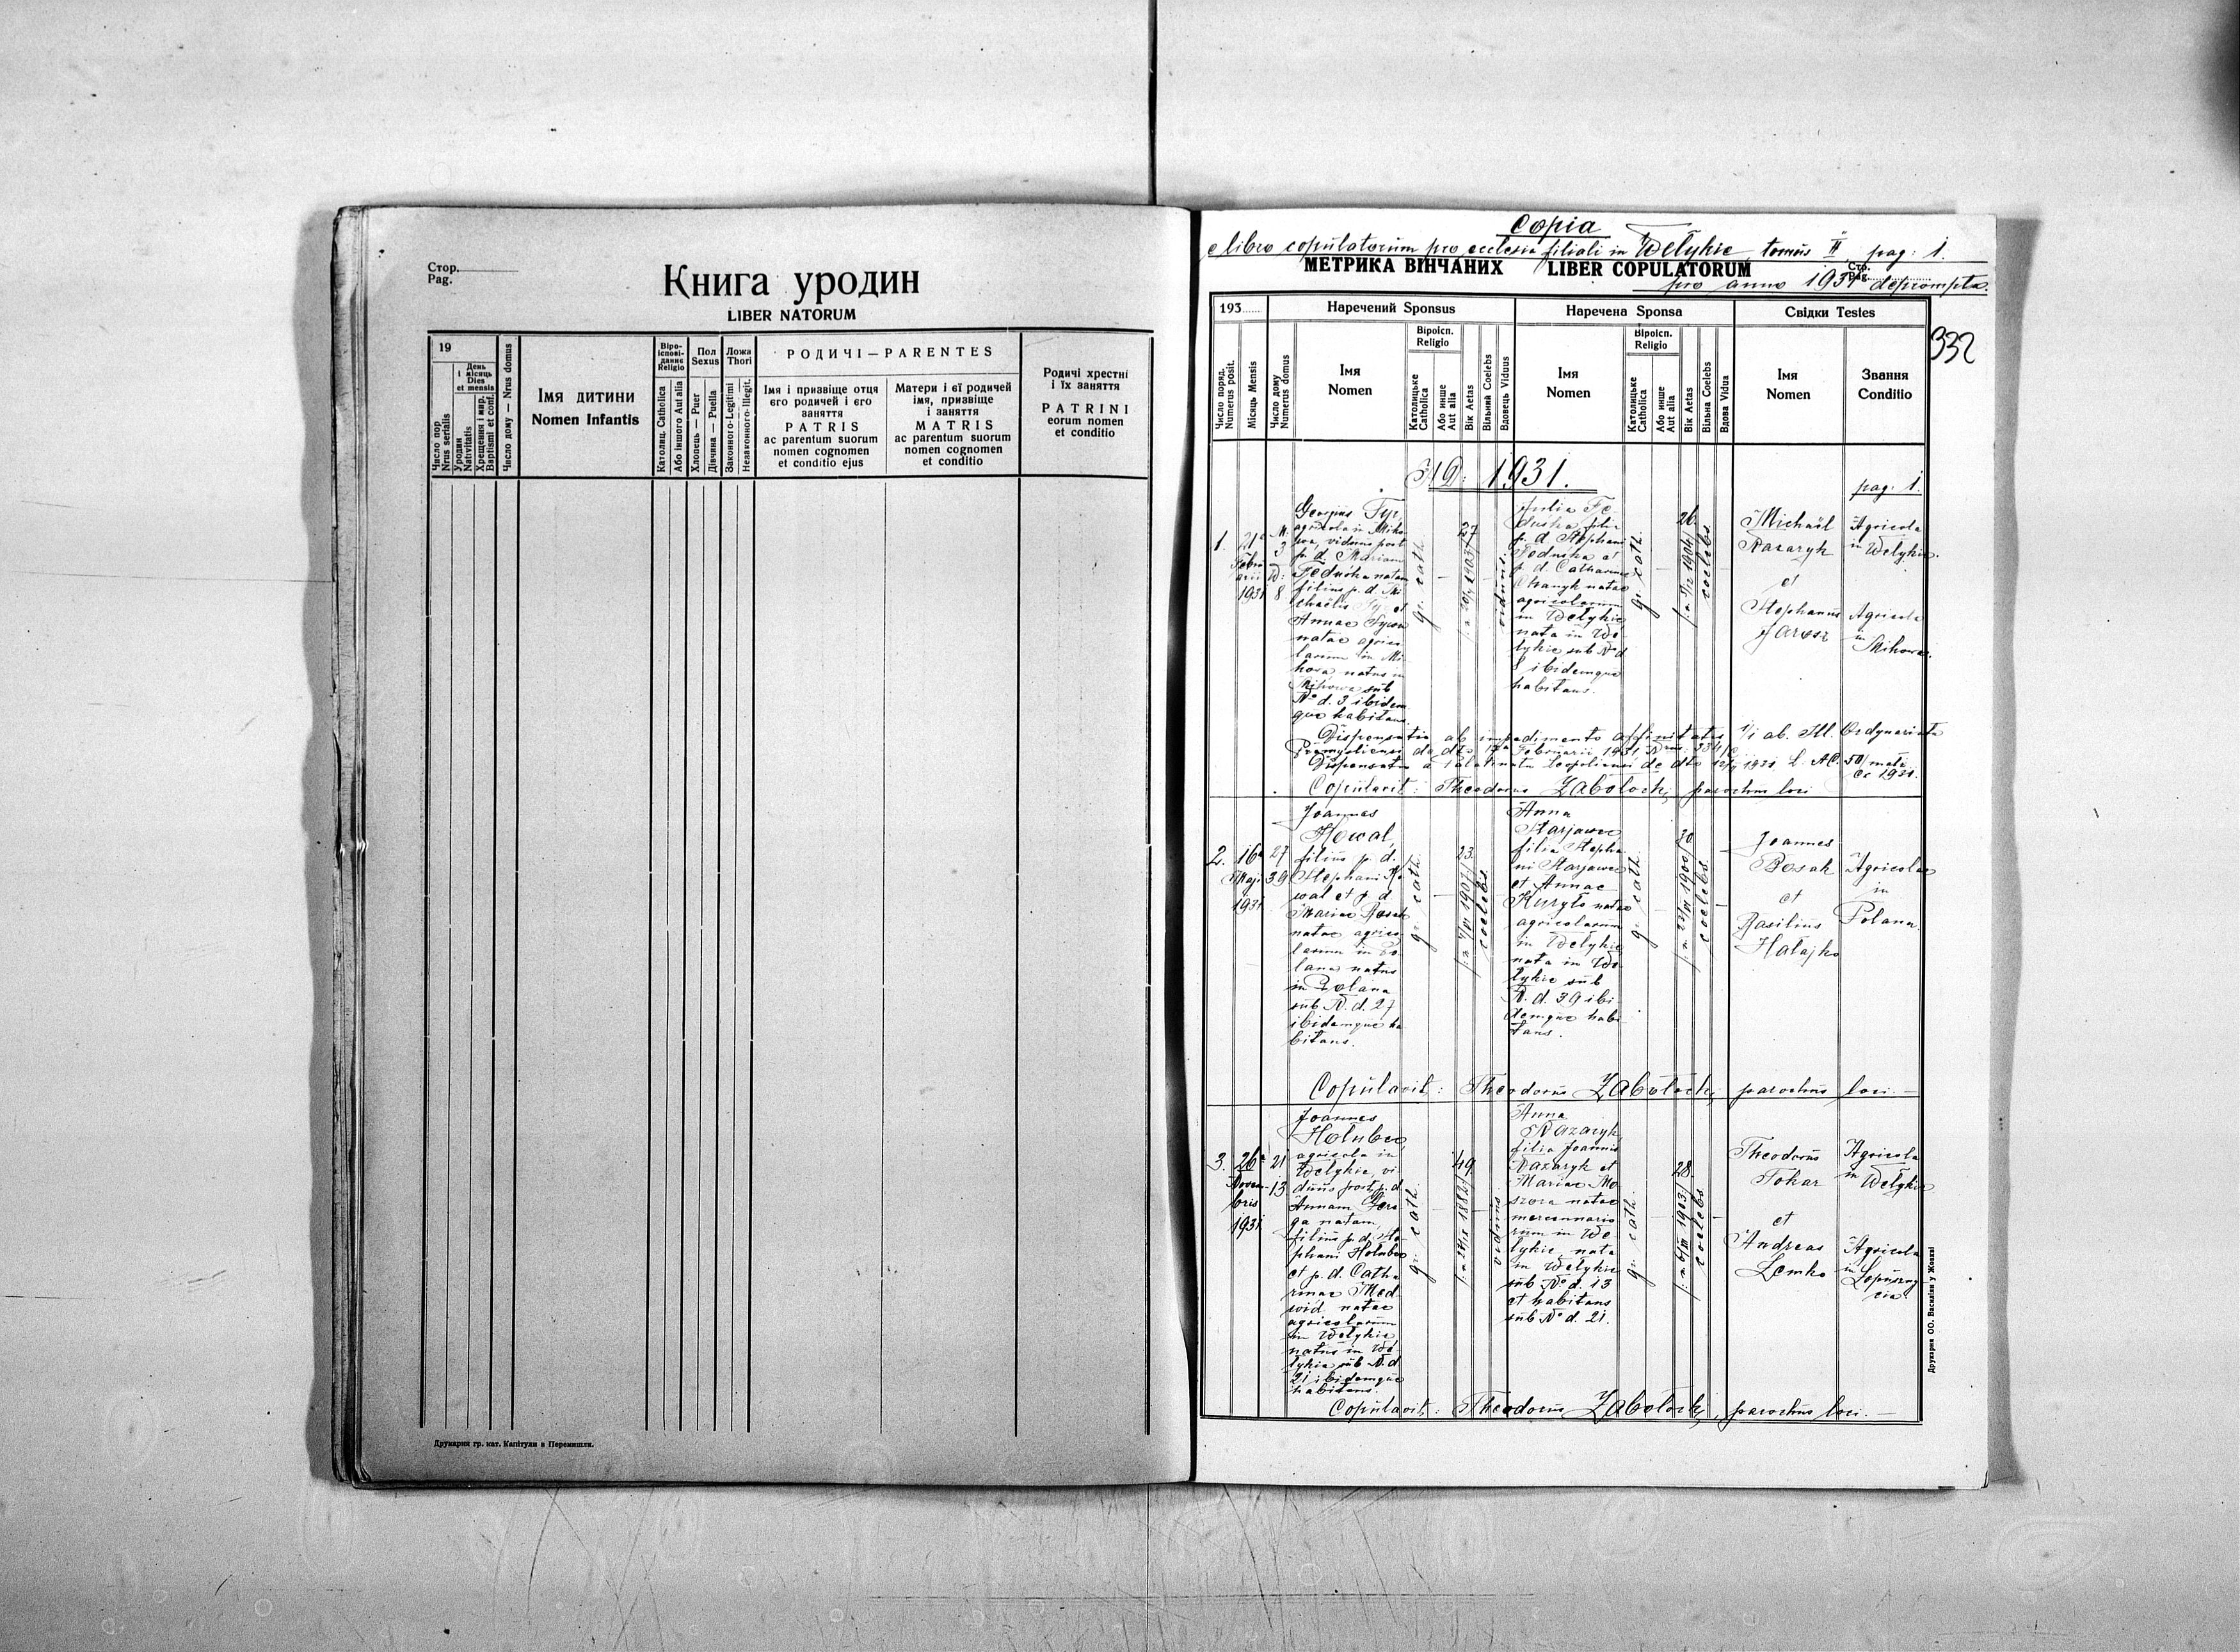 Стор.
Pag.
Книга уродин
LIBER NATORUM
19
Число пор
Nrus serialis
День
і місяць
Dies
et mensis
Уродин
Nativitatis
Хрещення і мир.
Baptismi et conf.
Число дому — Nrus domus
Імя дитини
Nomen Infantis
Віро-
ісповіданне
Religio
Католиц. Catholica
Або іншого Aut alia
Пол
Sexus
Хлопець — Puer
Дівчина — Puella
Ложа
Thori
Законного-Legitimi
Незаконного-Illegit.
РОДИЧІ — PARENTES
Імя і призвіще отця
єго родичей і єго
заняття
PATRIS
ac parentum suorum
nomen cognomen
et conditio ejus
Матери і єї родичей
імя, призвіще
і заняття
MATRIS
ac parentum suorum
nomen cognomen
et conditio
Родичі хресті
і їх заняття
PATRINI
eorum nomen
et conditio
Друкарня гр. кат. Капітули в Перемишли.
Copia
e libro copulatorum pro ecclesia filiali in Wełykie, tomus II, pag: 1.
МЕТРИКА ВІНЧАНИХ LIBER COPULATORUM
Стр.
Pag.
pro anno 1931 deprompta.
332
193
Число поряд.
Numerus posit.
Місяць Mensis
Число дому
Numerus domus
Наречений Sponsus
Імя
Nomen
Віроісп.
Religio
Католицьке
Catholica
Або инше
Aut alia
Вік Aetas
Вільний Coelebs
Вдовець Viduus
Наречена Sponsa
Імя
Nomen
Віроісп.
Religio
Католицьке
Catholica
Або инше
Aut alia
Вік Aetas
Вільна Coelebs
Вдова Vidua
Свідки Testes
Імя
Nomen
Звання
Conditio
AD: 1931.
pag. 1.
1.
21a
Febru
arii
1931
M.
3
W:
8
Georgius Tyr,
agricola in Miho
wa, viduus post
p. d. Mariam
Feduśka natam
filius p. d. Mi
chaëlis Tyr et
Annae
natae agrico
larum in Mi
howa natus in
Mihowa sub
No d. 3 ibidem
que habitans.
gr. cath.
27
viduus
Julia Fe
duśka filia
p. d. Stephani
Feduśka et
p. d. Catharinae
natae
agricolarum
in Wełykie
nata in We
łykie sub No d
8 ibidemque
habitans.
gr. cath.
26
coelebs
Michaël
Nazaryk
et
Stephanus
Jarosz
Agricola
in Wełykie.
Agricola
in
Mihowa.
Dispensatio ab impedimento affinitatis 1/i ab. Ill. Ordynariatu
Premysliensi de dto 17a Februarii 1931
Copulavit: Theodorus Zabołocki, parochus loci
2.
16a
Maji
1931
27
39
Joannes
Kowal,
filius p. d.
Stephani Ko
wal et p. d
Mariae Bosak
natae agrico
larum in Po
lana natus
in Polana
sub N. d. 27
ibidemque ha
bitans.
gr. cath.
23
coelebs
Anna
Starjawec
filia Stepha
ni Starjawec
et Annae
Kuryło natae
agricolarum
in Wełykie
nata in We
łykie sub
N. d. 39 ibi
demque habi
tans.
gr. cath.
30
coelebs
Joannes
Bosak
et
Basilius
Hałajko
Agricolae
in
Polana.
Copulavit: Theodorus Zabołocki, parochus loci. —
3.
26a
Novem
bris
1931
21
13
Joannes
Hołubec
agricola in
Wełykie, vi
duus post p. d
Annam Gere
ga natam,
filius p. d. Ste
phani Hołubec
et p. d. Catha
rinae Med
wid natae
agricolarum
in Wełykie,
natus in We
łykie sub N. d
21 ibidemque
habitans.
gr. cath.
49
viduus
Anna
Nazaryk,
filia Joannis
Nazaryk et
Mariae Mo
szora natae
mercennario
rum in We
łykie, nata
in Wełykie
sub No d. 13
et habitans
sub No d. 21.
gr. cath.
28
coelebs
Theodorus
Tokar
et
Andreas
Lemko
Agricola
in Wełykie
Agricola
in Łopusz
Copulavit: Theodorus Zabołocki, parochus loci. —
Друкарня ОО. Василіян у Жовкві